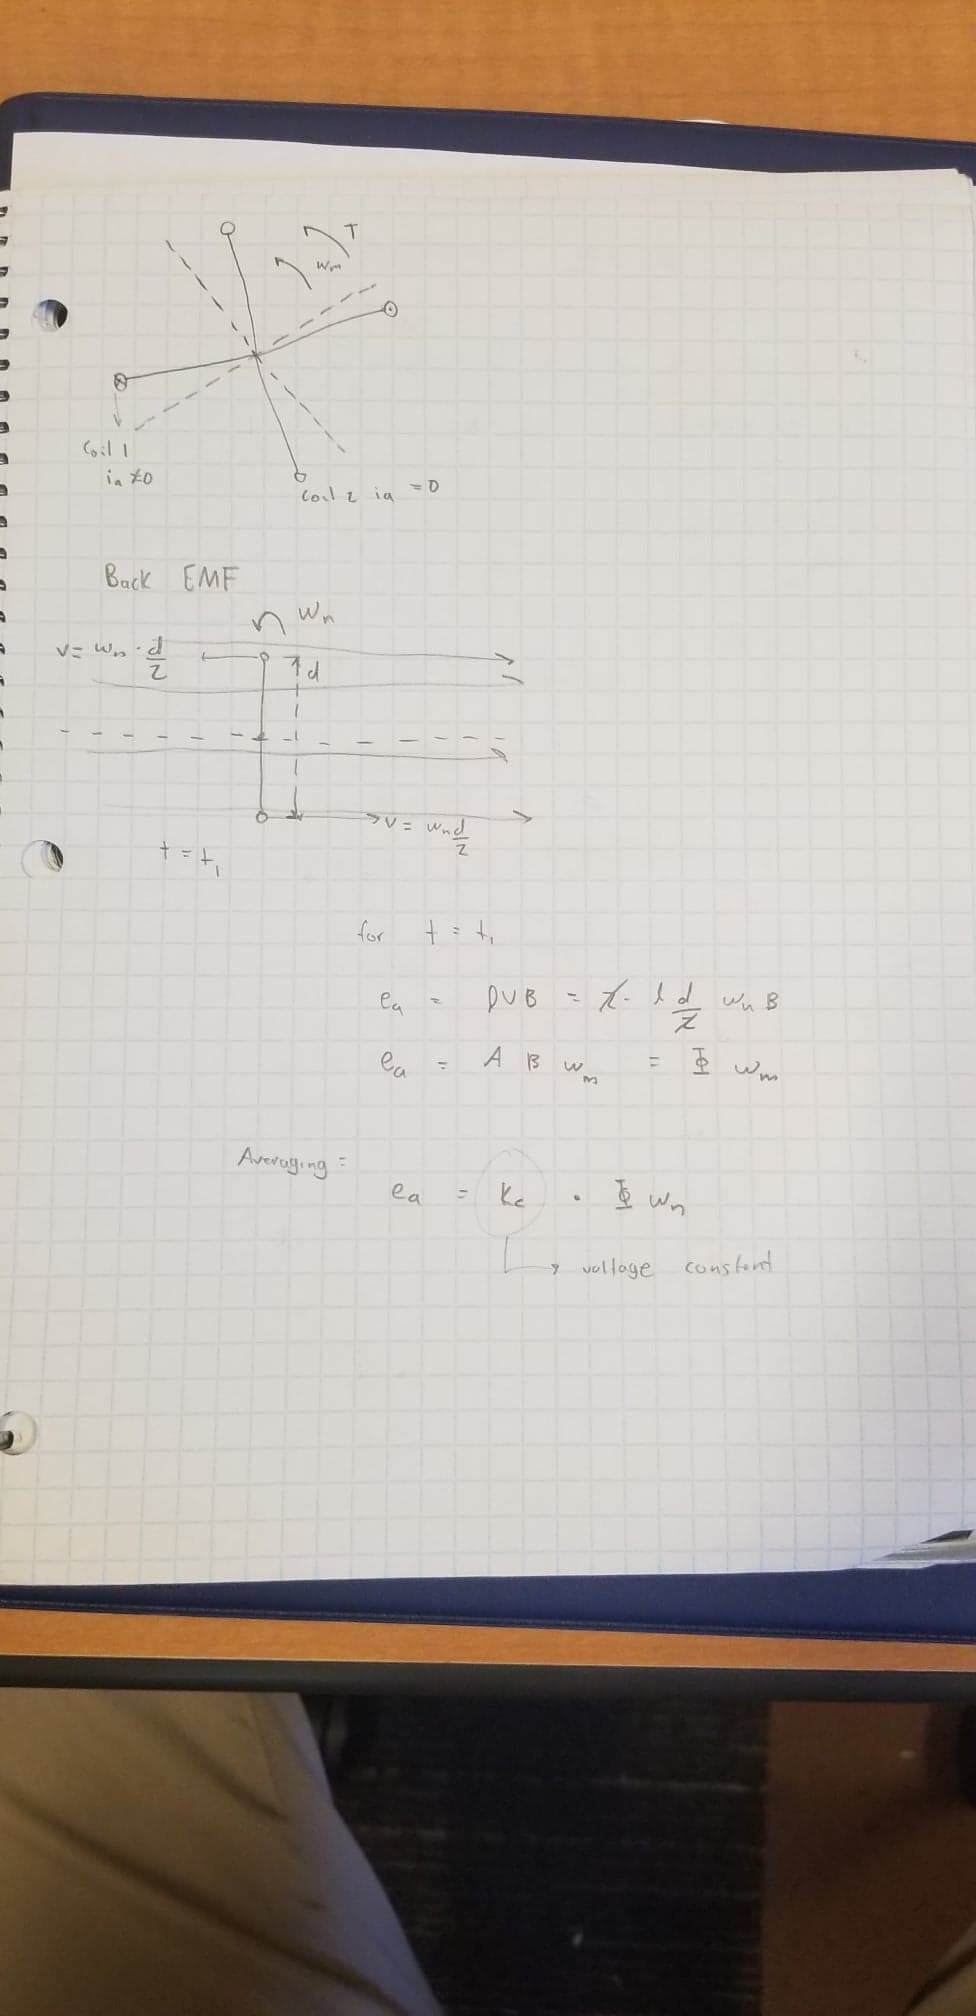 T
Wm
Coil 1
ia ≠0
Coil 2 ia =0
Back EMF
Wn
V= Wn · d/2
d
V= Wn d/2
t = t₁
for t = t₁
ea = lVB = 2· l d/2 Wn B
ea = A B Wm = Φ Wm
Averaging =
ea = Ke · Φ Wn
voltage constant